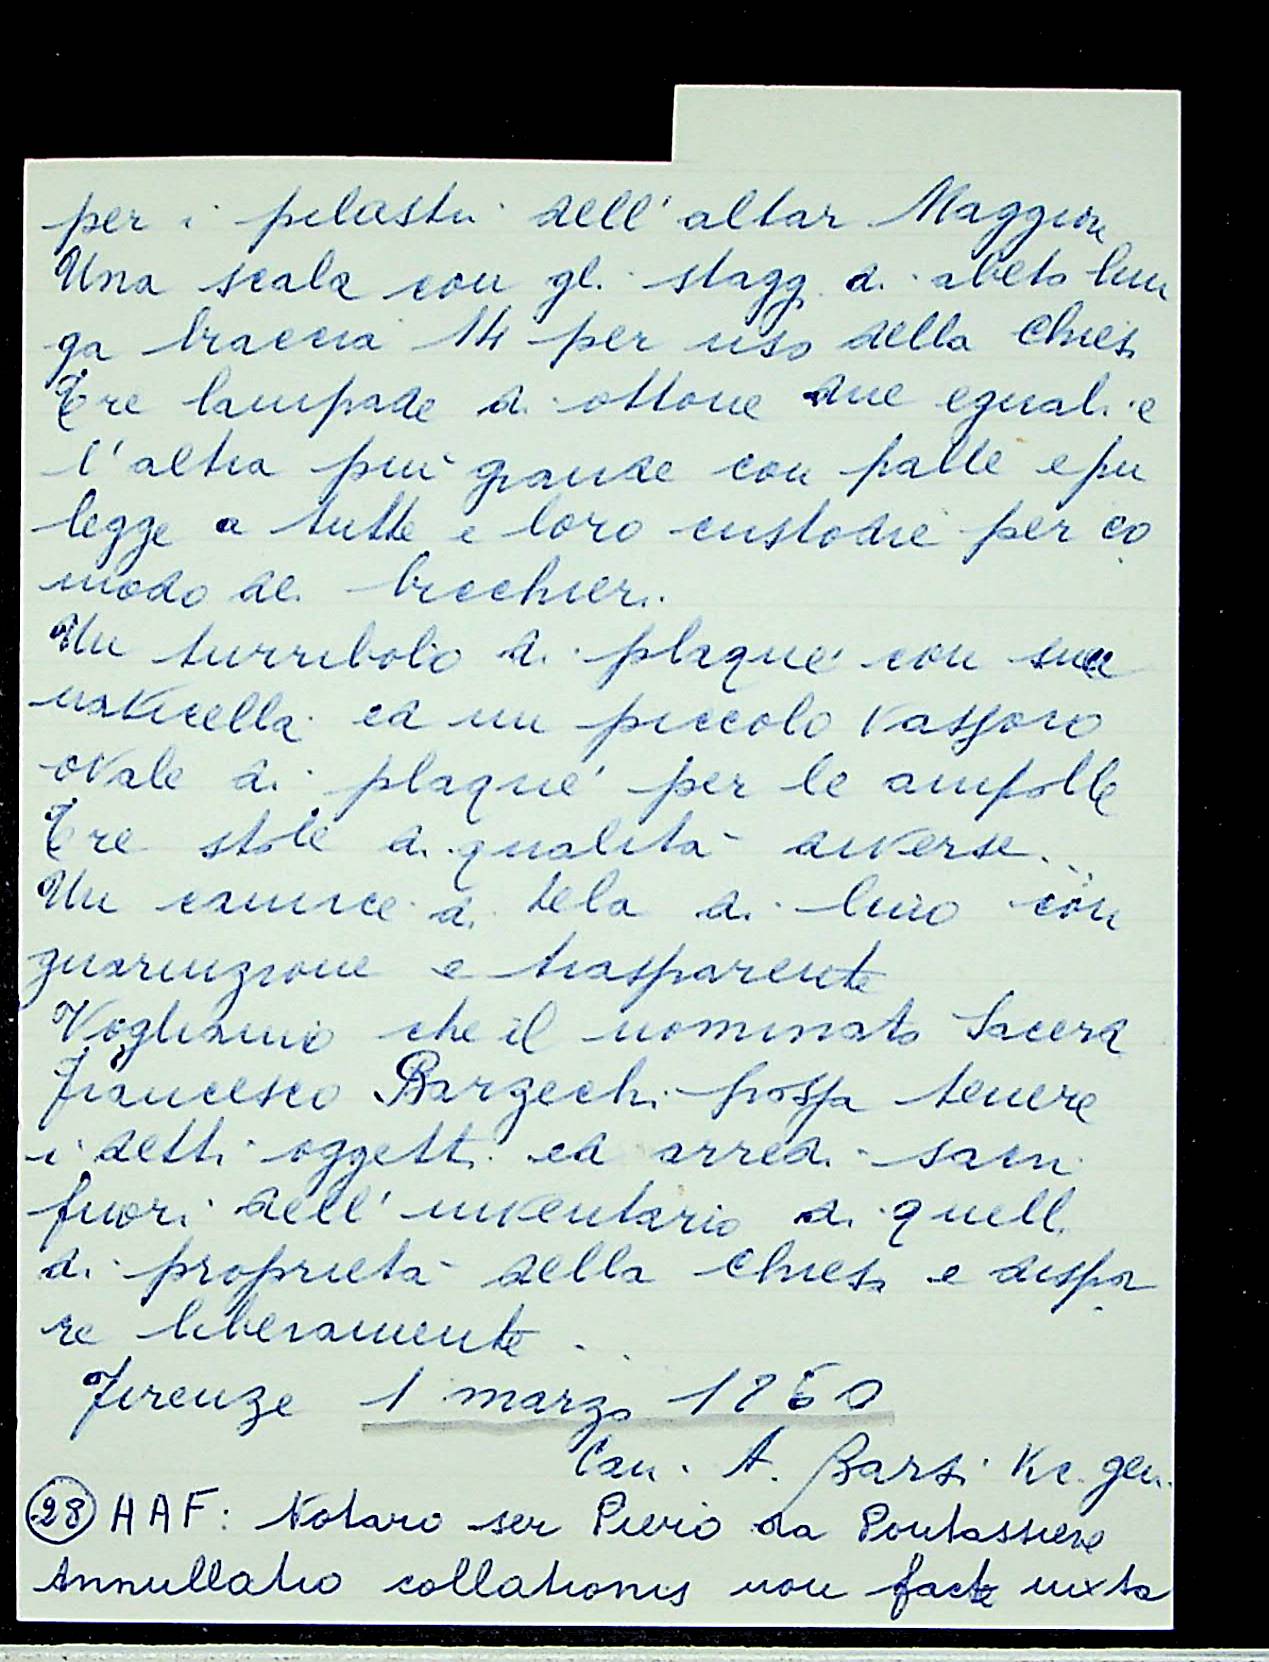 per i pilastri dell'altar Maggiore
Una scala con gli stagg. di abeto lun
ga braccia 14 per uso della Chiesa
Tre lampade di ottone due eguali e
l'altra più grande con palle e pu
legge a tutte e loro custodie per co
modo dei bicchieri.
Un turribolo di plaquè con sua
navicella ed un piccolo vassoio
ovale di plaquè per le ampolle
Tre stole di qualità diverse.
Un camice di tela di lino con
guarnizione e trasparente
Vogliamo che il nominato Sacerd
Francesco Barzechi possa tenere
i detti oggetti ed arredi sacri
fuori dell'inventario di quelli
di proprietà della Chiesa e dispor
re liberamente.
Firenze 1 marzo 1860
Can. A. Barsi Vic. gen.
(28) AAF: Notaro ser Piero da Pontassieve
Annullatio collationis non facte iuxta